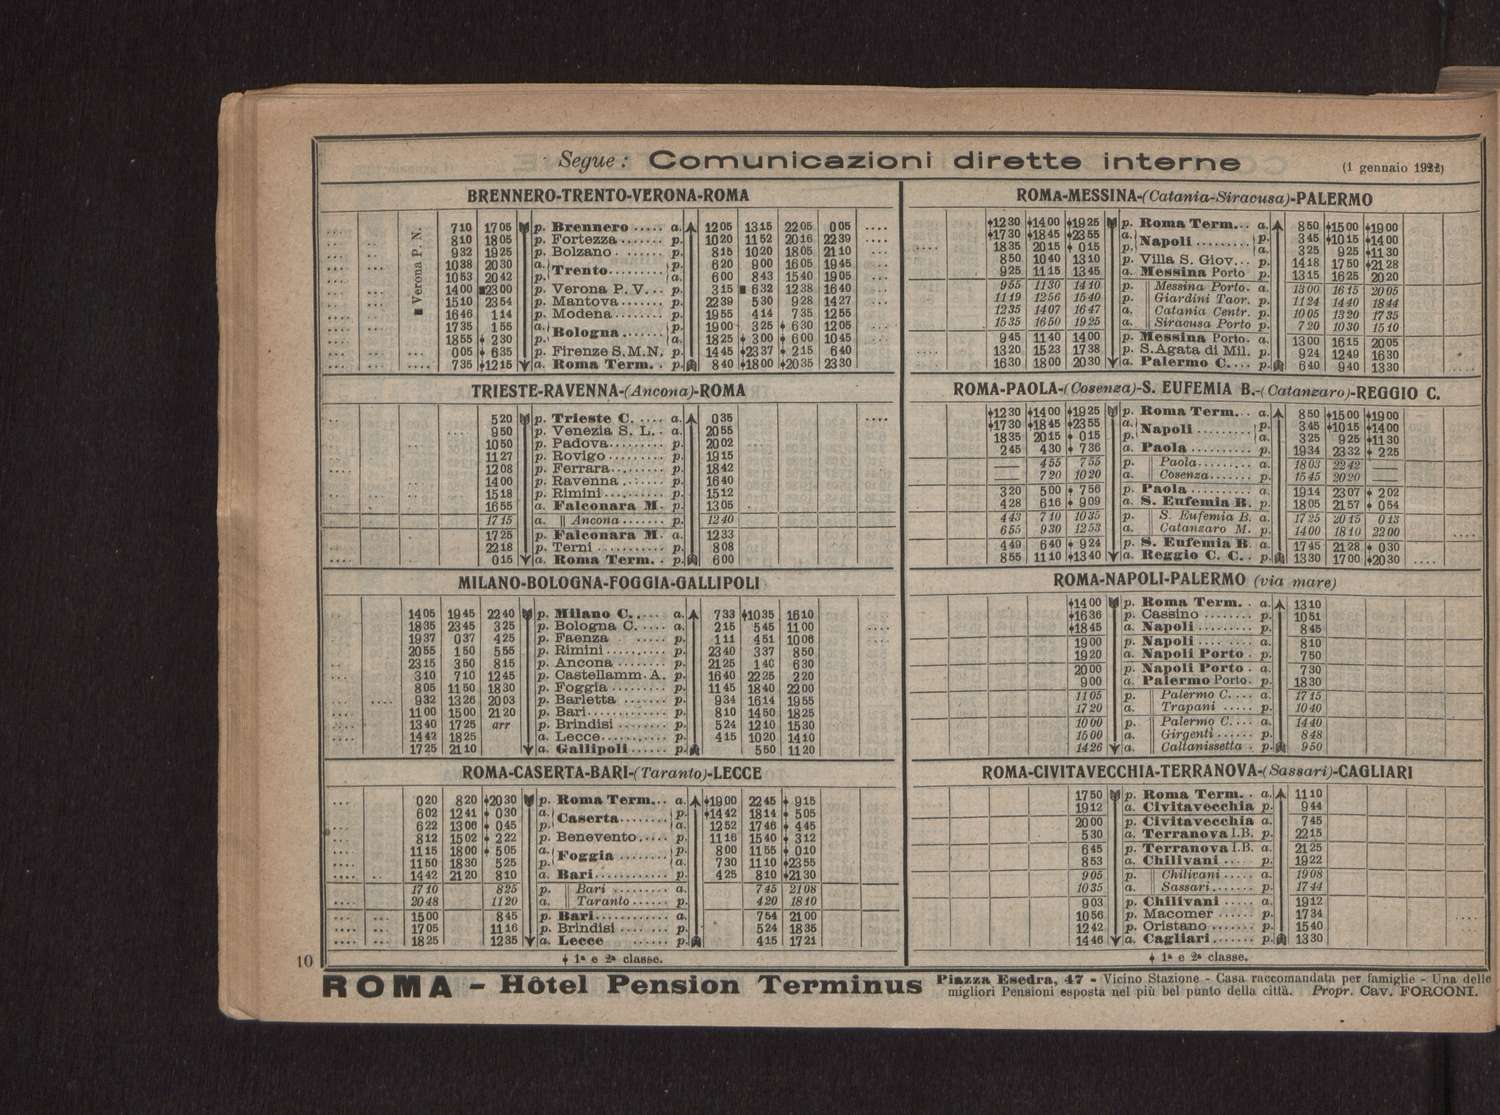 Segue: Comunicazioni dirette interne (1 gennaio 1922)
BRENNERO-TRENTO-VERONA-ROMA
■ Verona P. N.
7 10 17 05 p. Brennero ..... a. 12 05 13 15 22 05 0 05
8 10 18 05 p. Fortezza ....... p. 10 20 11 52 20 16 22 39
9 32 19 25 p. Bolzano ....... p. 8 15 10 20 18 05 21 10
10 38 20 30 a. Trento ......... p. 6 20 9 00 16 05 19 45
10 53 20 42 p. a. 6 00 8 43 15 40 19 05
14 00 ■23 00 p. Verona P. V... p. 3 15 ■ 6 32 12 38 16 40
15 10 23 54 p. Mantova ....... p. 22 39 5 30 9 28 14 27
16 46 1 14 p. Modena ........ p. 19 55 4 14 7 35 12 55
17 35 1 55 a. Bologna ....... p. 19 00 3 25 ⸸ 6 30 12 05
18 55 ⸸ 2 30 p. a. 18 25 ⸸ 3 00 ⸸ 6 00 10 45
0 05 ⸸ 6 35 p. Firenze S.M.N. p. 14 45 ⸸23 37 ⸸ 2 15 6 40
7 35 ⸸12 15 a. Roma Term. .. p. 8 40 ⸸18 00 ⸸20 35 23 30
TRIESTE-RAVENNA-(Ancona)-ROMA
5 20 p. Trieste C. .... a. 0 35
9 50 p. Venezia S. L. . p. 20 55
10 50 p. Padova ......... p. 20 02
11 27 p. Rovigo ......... p. 19 15
12 08 p. Ferrara ........ p. 18 42
14 00 p. Ravenna ....... p. 16 40
15 18 p. Rimini ......... p. 15 12
16 55 a. Falconara M. p. 13 05
17 15 a. ‖ Ancona ....... p. 12 40
17 25 p. Falconara M. a. 12 33
22 18 p. Terni .......... p. 8 08
0 15 a. Roma Term. .. p. 6 00
MILANO-BOLOGNA-FOGGIA-GALLIPOLI
14 05 19 45 22 40 p. Milano C. .... a. 7 33 ⸸10 35 16 10
18 35 23 45 3 25 p. Bologna C. .... p. 2 15 5 45 11 00
19 37 0 37 4 25 p. Faenza ....... p. 1 11 4 51 10 06
20 55 1 50 5 55 p. Rimini ......... p. 23 40 3 37 8 50
23 15 3 50 8 15 p. Ancona ........ p. 21 25 1 40 6 30
3 10 7 10 12 45 p. Castellamm. A. p. 16 40 22 25 2 20
8 05 11 50 18 30 p. Foggia ......... p. 11 45 18 40 22 00
9 32 13 26 20 03 p. Barletta ....... p. 9 34 16 14 19 55
11 00 15 00 21 20 p. Bari ............ p. 8 10 14 50 18 25
13 40 17 25 arr p. Brindisi ....... p. 5 24 12 10 15 30
14 42 18 25 a. Lecce ........... p. 4 15 10 20 14 10
17 25 21 10 a. Gallipoli ...... p. 5 50 11 20
ROMA-CASERTA-BARI-(Taranto)-LECCE
0 20 8 20 ⸸20 30 p. Roma Term... a. ⸸19 00 22 45 ⸸ 9 15
6 02 12 41 ⸸ 0 30 a. Caserta ........ p. ⸸14 42 18 14 ⸸ 5 05
6 22 13 06 ⸸ 0 45 p. a. 12 52 17 46 ⸸ 4 45
8 12 15 02 ⸸ 2 22 p. Benevento ..... p. 11 16 15 40 ⸸ 3 12
11 15 18 00 ⸸ 5 05 a. Foggia ........ p. 8 00 11 55 ⸸ 0 10
11 50 18 30 5 25 p. a. 7 30 11 10 ⸸23 55
14 42 21 20 8 10 a. Bari ........... p. 4 25 8 10 ⸸21 30
17 10 8 25 p. ‖ Bari ......... a. 7 45 21 08
20 48 11 20 a. ‖ Taranto ...... p. 4 20 18 10
15 00 8 45 p. Bari ........... a. 7 54 21 00
17 05 11 16 p. Brindisi ....... p. 5 24 18 35
18 25 12 35 a. Lecce ...... p. 4 15 17 21
⸸ 1ª e 2ª classe.
ROMA-MESSINA-(Catania-Siracusa)-PALERMO
⸸12 30 ⸸14 00 ⸸19 25 p. Roma Term... a. 8 50 ⸸15 00 ⸸19 00
⸸17 30 ⸸18 45 ⸸23 55 a. Napoli ......... p. 3 45 ⸸10 15 ⸸14 00
18 35 20 15 ⸸ 0 15 p. a. 3 25 9 25 ⸸11 30
8 50 10 40 13 10 p. Villa S. Giov... p. 14 18 17 50 ⸸21 28
9 25 11 15 13 45 a. Messina Porto p. 13 15 16 25 20 20
9 55 11 30 14 10 p. ‖ Messina Porto. a. 13 00 16 15 20 05
11 19 12 56 15 40 p. ‖ Giardini Taor. p. 11 24 14 40 18 44
12 35 14 07 16 47 a. ‖ Catania Centr. p. 10 05 13 20 17 35
15 35 16 50 19 25 a. ‖ Siracusa Porto p. 7 20 10 30 15 10
9 45 11 40 14 00 p. Messina Porto. a. 13 00 16 15 20 05
13 20 15 23 17 38 p. S.Agata di Mil. p. 9 24 12 49 16 30
16 30 18 00 20 30 a. Palermo C. .. p. 6 40 9 40 13 30
ROMA-PAOLA-(Cosenza)-S. EUFEMIA B.-(Catanzaro)-REGGIO C.
⸸12 30 ⸸14 00 ⸸19 25 p. Roma Term... a. 8 50 ⸸15 00 ⸸19 00
⸸17 30 ⸸18 45 ⸸23 55 a. Napoli ......... p. 3 45 ⸸10 15 ⸸14 00
18 35 20 15 ⸸ 0 15 p. a. 3 25 9 25 ⸸11 30
2 45 4 30 ⸸ 7 36 a. Paola .......... p. 19 34 23 32 ⸸ 2 25
—— 4 55 7 55 p. ‖ Paola ......... a. 18 03 22 42 ——
—— 7 20 10 20 a. ‖ Cosenza ....... p. 15 45 20 20 ——
3 20 5 00 ⸸ 7 56 p. Paola .......... a. 19 14 23 07 ⸸ 2 02
4 28 6 16 ⸸ 9 09 a. S. Eufemia B. p. 18 05 21 57 ⸸ 0 54
4 43 7 10 10 35 p. ‖ S. Eufemia B. a. 17 25 20 15 0 13
6 55 9 30 12 53 a. ‖ Catanzaro M. p. 14 00 18 10 22 00
4 49 6 40 ⸸ 9 24 p. S. Eufemia B. a. 17 45 21 28 ⸸ 0 30
8 55 11 10 ⸸13 40 a. Reggio C. C. . p. 13 30 17 00 ⸸20 30
ROMA-NAPOLI-PALERMO (via mare)
⸸14 00 p. Roma Term. . a. 13 10
⸸16 36 p. Cassino ........ p. 10 51
⸸18 45 a. Napoli ........ p. 8 45
19 00 p. Napoli ........ a. 8 10
19 20 a. Napoli Porto . p. 7 50
20 00 p. Napoli Porto . a. 7 30
9 00 a. Palermo Porto. p. 18 30
11 05 p. ‖ Palermo C. ... a. 17 15
17 20 a. ‖ Trapani ...... p. 10 40
10 00 p. ‖ Palermo C. ... a. 14 40
15 00 a. ‖ Girgenti ...... p. 8 48
14 26 a. ‖ Caltanissetta . p. 9 50
ROMA-CIVITAVECCHIA-TERRANOVA-(Sassari)-CAGLIARI
17 50 p. Roma Term. . a. 11 10
19 12 a. Civitavecchia p. 9 44
20 00 p. Civitavecchia a. 7 45
5 30 a. Terranova I.B. p. 22 15
6 45 p. Terranova I.B. a. 21 25
8 53 a. Chilivani ..... p. 19 22
9 05 p. ‖ Chilivani ..... a. 19 08
10 35 a. ‖ Sassari ....... p. 17 44
9 03 p. Chilivani ..... a. 19 12
10 56 p. Macomer ...... p. 17 34
12 42 p. Oristano ....... p. 15 40
14 46 a. Cagliari ....... p. 13 30
⸸ 1ª e 2ª classe.
10
ROMA – Hôtel Pension Terminus Piazza Esedra, 47 - Vicino Stazione - Casa raccomandata per famiglie - Una delle
migliori Pensioni esposta nel più bel punto della città. Propr. Cav. FORCONI.